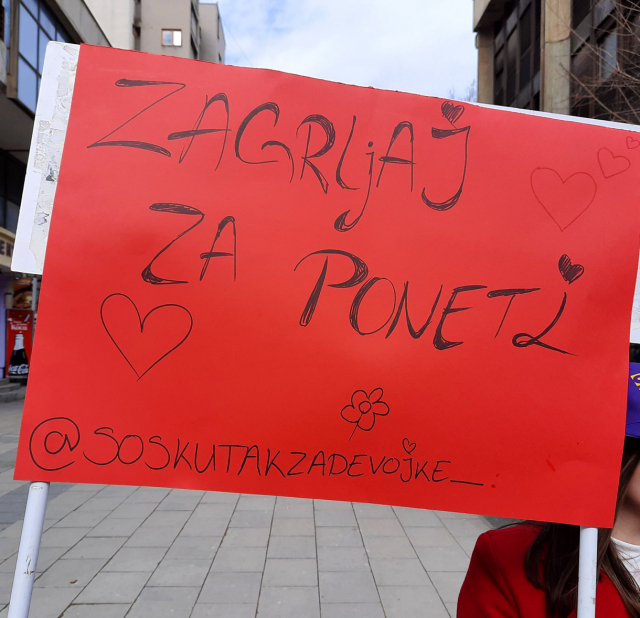 ZAGRLjAJ
ZA PONETI
@SOSKUTAKZADEVOJKE_